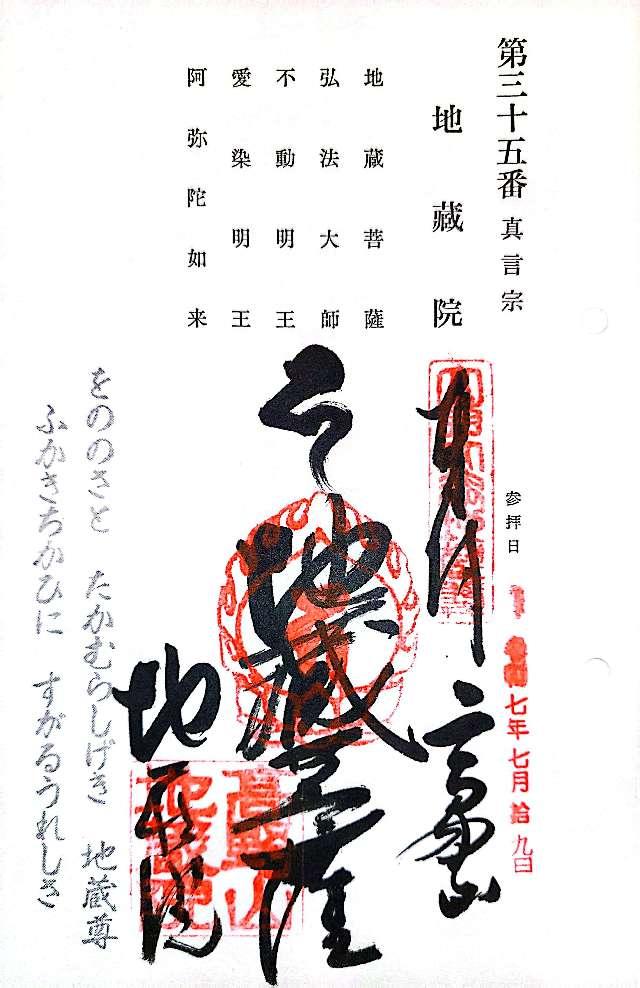 第三十五番 真言宗
地蔵院
地蔵菩薩
弘法大師
不動明王
愛染明王
阿弥陀如来
参拝日
令和七年七月拾九日
奉拝
地蔵菩薩
地蔵院
をののさと たかむらしげき 地蔵尊
ふかきちかひに すがるうれしさ